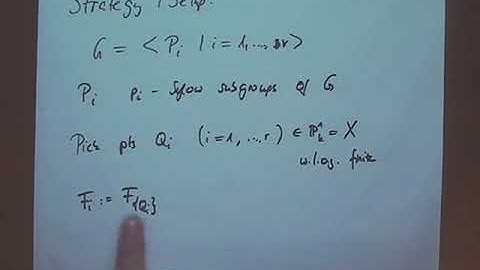 Strategy / Setup:
G = < P_i | i = 1, ..., r >
P_i p_i - Sylow subgroups of G
Pick pts Q_i (i = 1, ..., r) ∈ P^1_k = X
w.l.o.g. finite
F_i := F_{Q_i}